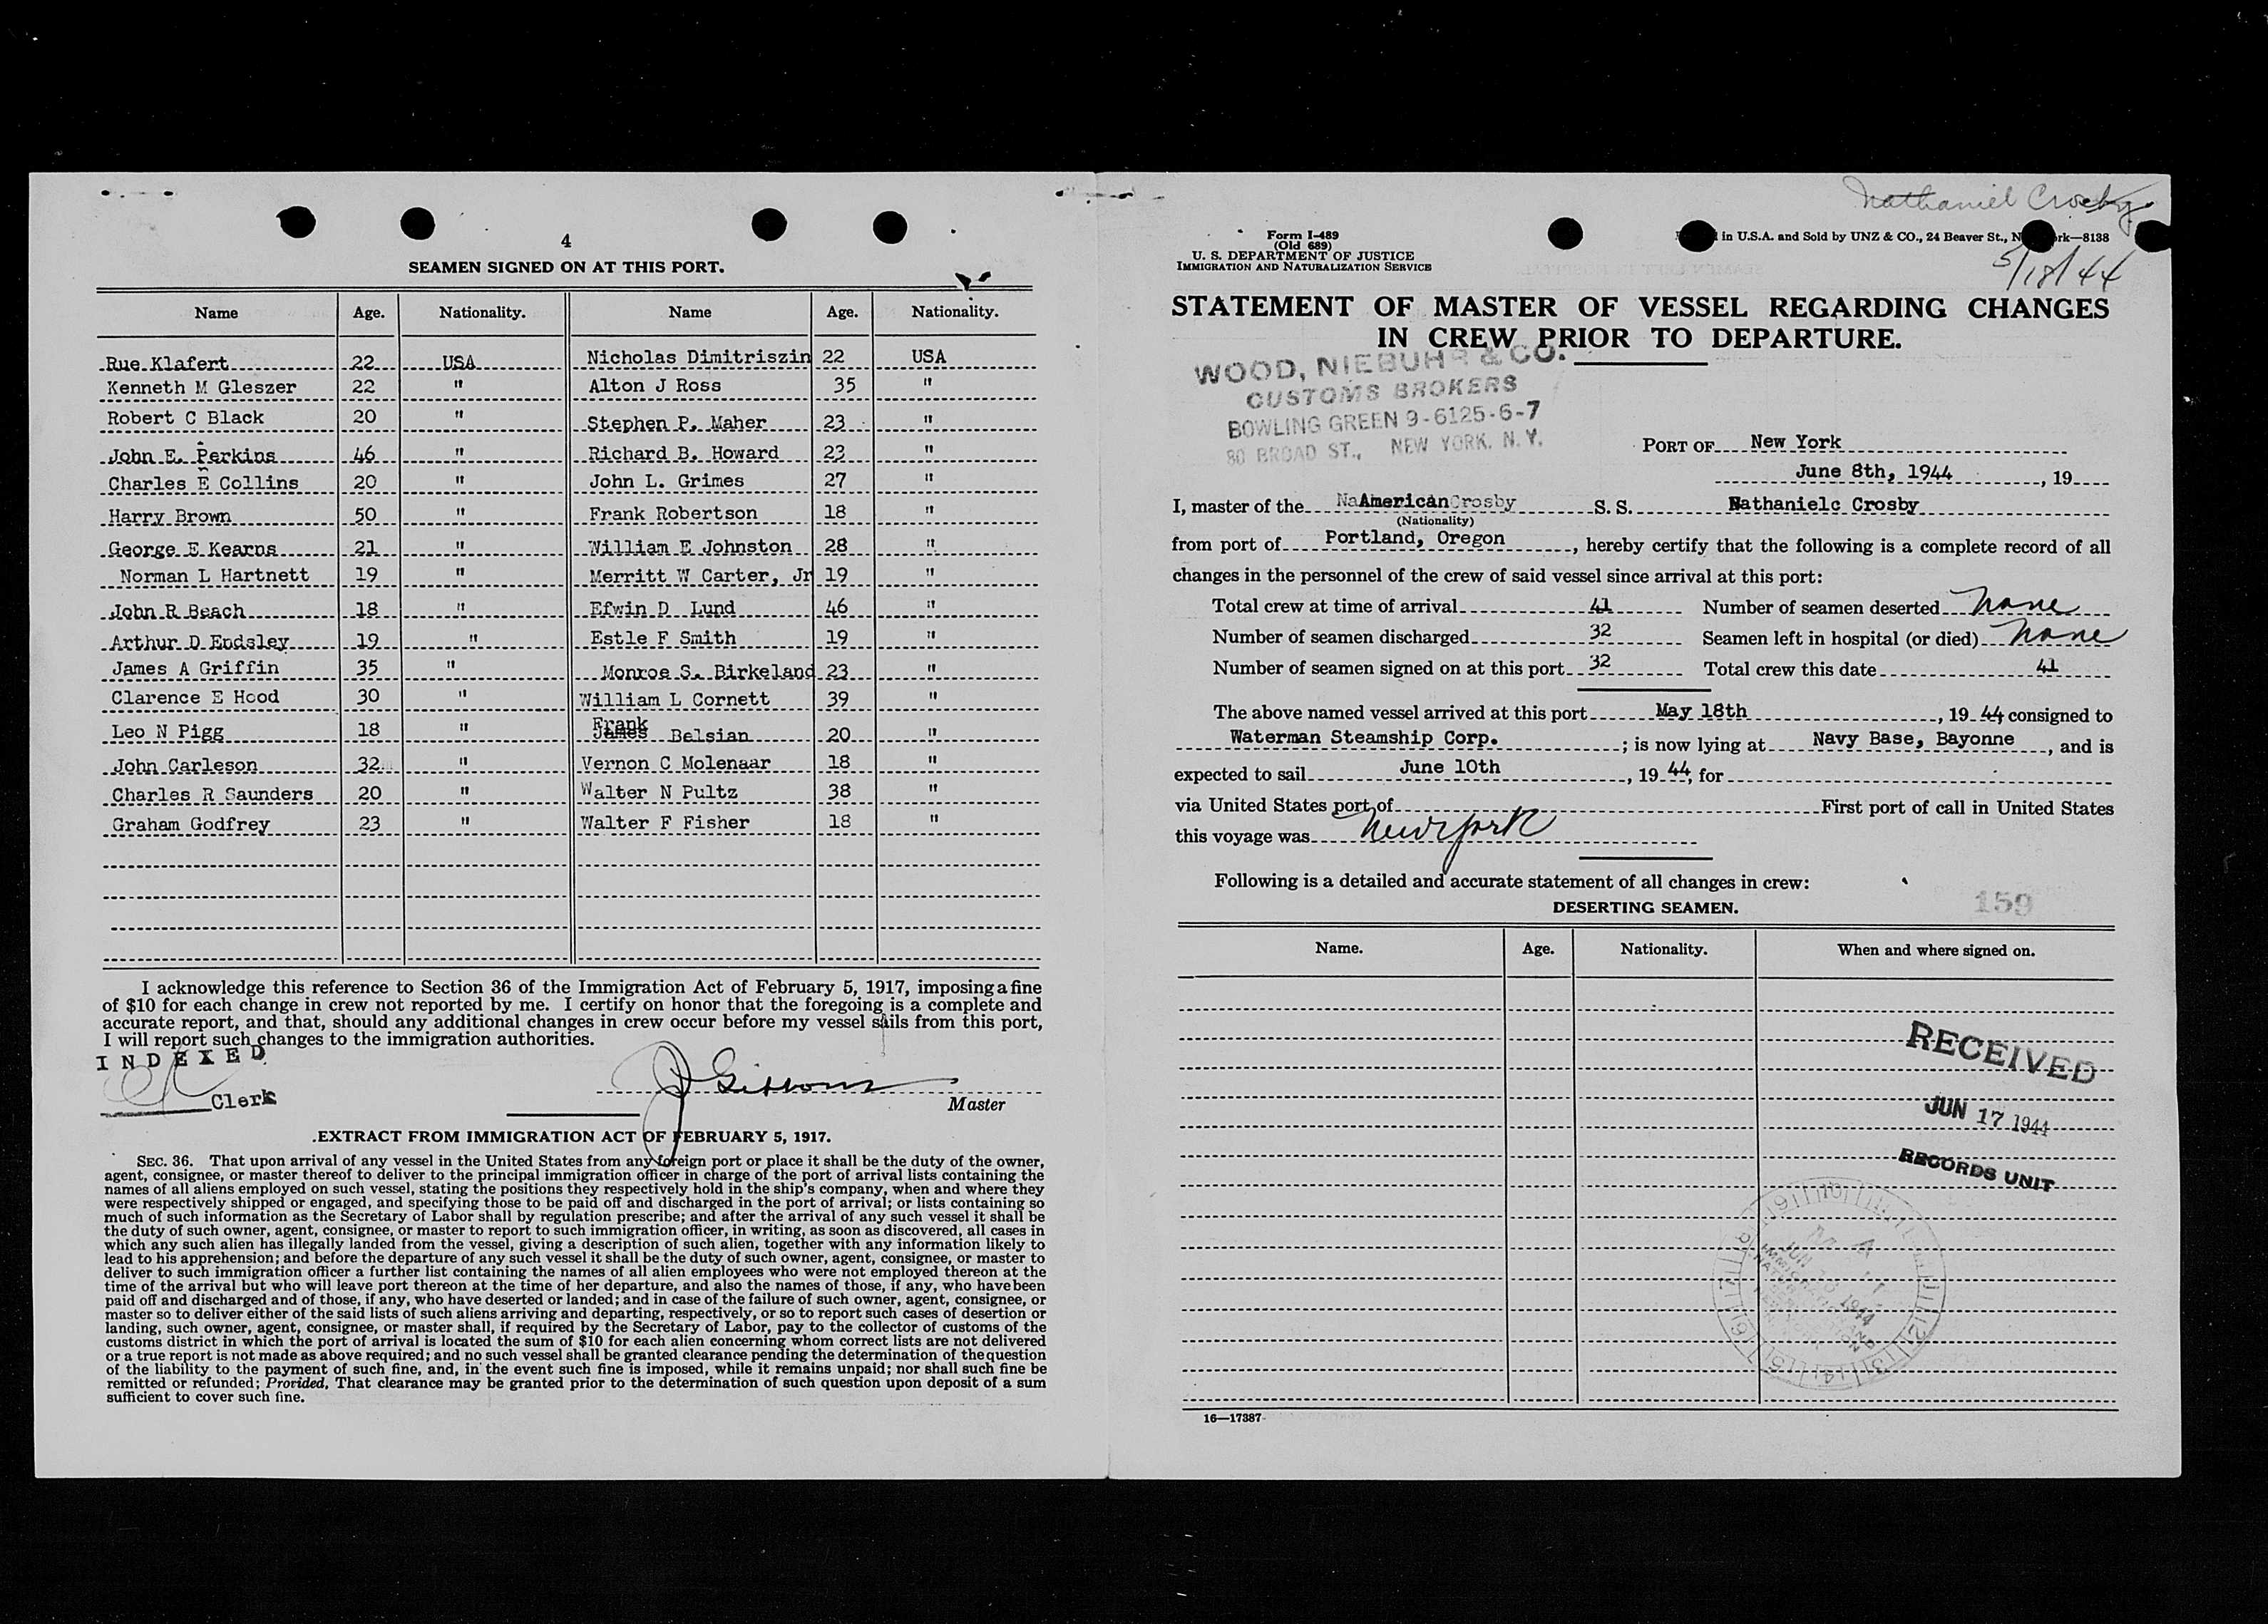 4
SEAMEN SIGNED ON AT THIS PORT.
Name Age. Nationality. Name Age. Nationality.
Rue Klafert 22 USA Nicholas Dimitriszin 22 USA
Kenneth M Gleszer 22 " Alton J Ross 35 "
Robert C Black 20 " Stephen P. Maher 23 "
John E. Perkins 46 " Richard B. Howard 23 "
Charles E Collins 20 " John L. Grimes 27 "
Harry Brown 50 " Frank Robertson 18 "
George E Kearns 21 " William E Johnston 28 "
Norman L Hartnett 19 " Merritt W Carter, Jr 19 "
John R Beach 18 " Efwin D Lund 46 "
Arthur D Endsley 19 " Estle F Smith 19 "
James A Griffin 35 " Monroe S. Birkeland 23 "
Clarence E Hood 30 " William L Cornett 39 "
Leo N Pigg 18 " Frank James Belsian 20 "
John Carleson 32 " Vernon C Molenaar 18 "
Charles R Saunders 20 " Walter N Pultz 38 "
Graham Godfrey 23 " Walter F Fisher 18 "
I acknowledge this reference to Section 36 of the Immigration Act of February 5, 1917, imposing a fine
of $10 for each change in crew not reported by me. I certify on honor that the foregoing is a complete and
accurate report, and that, should any additional changes in crew occur before my vessel sails from this port,
I will report such changes to the immigration authorities.
INDEXED
J Gibbons
Clerk
Master
EXTRACT FROM IMMIGRATION ACT OF FEBRUARY 5, 1917.
SEC. 36. That upon arrival of any vessel in the United States from any foreign port or place it shall be the duty of the owner,
agent, consignee, or master thereof to deliver to the principal immigration officer in charge of the port of arrival lists containing the
names of all aliens employed on such vessel, stating the positions they respectively hold in the ship's company, when and where they
were respectively shipped or engaged, and specifying those to be paid off and discharged in the port of arrival; or lists containing so
much of such information as the Secretary of Labor shall by regulation prescribe; and after the arrival of any such vessel it shall be
the duty of such owner, agent, consignee, or master to report to such immigration officer, in writing, as soon as discovered, all cases in
which any such alien has illegally landed from the vessel, giving a description of such alien, together with any information likely to
lead to his apprehension; and before the departure of any such vessel it shall be the duty of such owner, agent, consignee, or master to
deliver to such immigration officer a further list containing the names of all alien employees who were not employed thereon at the
time of the arrival but who will leave port thereon at the time of her departure, and also the names of those, if any, who have been
paid off and discharged and of those, if any, who have deserted or landed; and in case of the failure of such owner, agent, consignee, or
master so to deliver either of the said lists of such aliens arriving and departing, respectively, or so to report such cases of desertion or
landing, such owner, agent, consignee, or master shall, if required by the Secretary of Labor, pay to the collector of customs of the
customs district in which the port of arrival is located the sum of $10 for each alien concerning whom correct lists are not delivered
or a true report is not made as above required; and no such vessel shall be granted clearance pending the determination of the question
of the liability to the payment of such fine, and, in the event such fine is imposed, while it remains unpaid; nor shall such fine be
remitted or refunded; Provided, That clearance may be granted prior to the determination of such question upon deposit of a sum
sufficient to cover such fine.
Nathaniel Crosby
5/18/44
Form I-489
(Old 689)
U. S. DEPARTMENT OF JUSTICE
IMMIGRATION AND NATURALIZATION SERVICE
in U.S.A. and Sold by UNZ & CO., 24 Beaver St., N rk—8138
STATEMENT OF MASTER OF VESSEL REGARDING CHANGES
IN CREW PRIOR TO DEPARTURE.
WOOD, NIEBUHR & CO.
CUSTOMS BROKERS
BOWLING GREEN 9-6125-6-7
80 BROAD ST., NEW YORK, N.Y.
PORT OF New York
June 8th, 1944, 19
I, master of the American S. S. Nathanielc Crosby
(Nationality)
from port of Portland, Oregon, hereby certify that the following is a complete record of all
changes in the personnel of the crew of said vessel since arrival at this port:
Total crew at time of arrival 41 Number of seamen deserted None
Number of seamen discharged 32 Seamen left in hospital (or died) None
Number of seamen signed on at this port 32 Total crew this date 41
The above named vessel arrived at this port May 18th, 19 44 consigned to
Waterman Steamship Corp.; is now lying at Navy Base, Bayonne, and is
expected to sail June 10th, 19 44, for
via United States port of First port of call in United States
this voyage was New York
Following is a detailed and accurate statement of all changes in crew:
159
DESERTING SEAMEN.
Name. Age. Nationality. When and where signed on.
RECEIVED
JUN 17 1944
RECORDS UNIT
16—17387